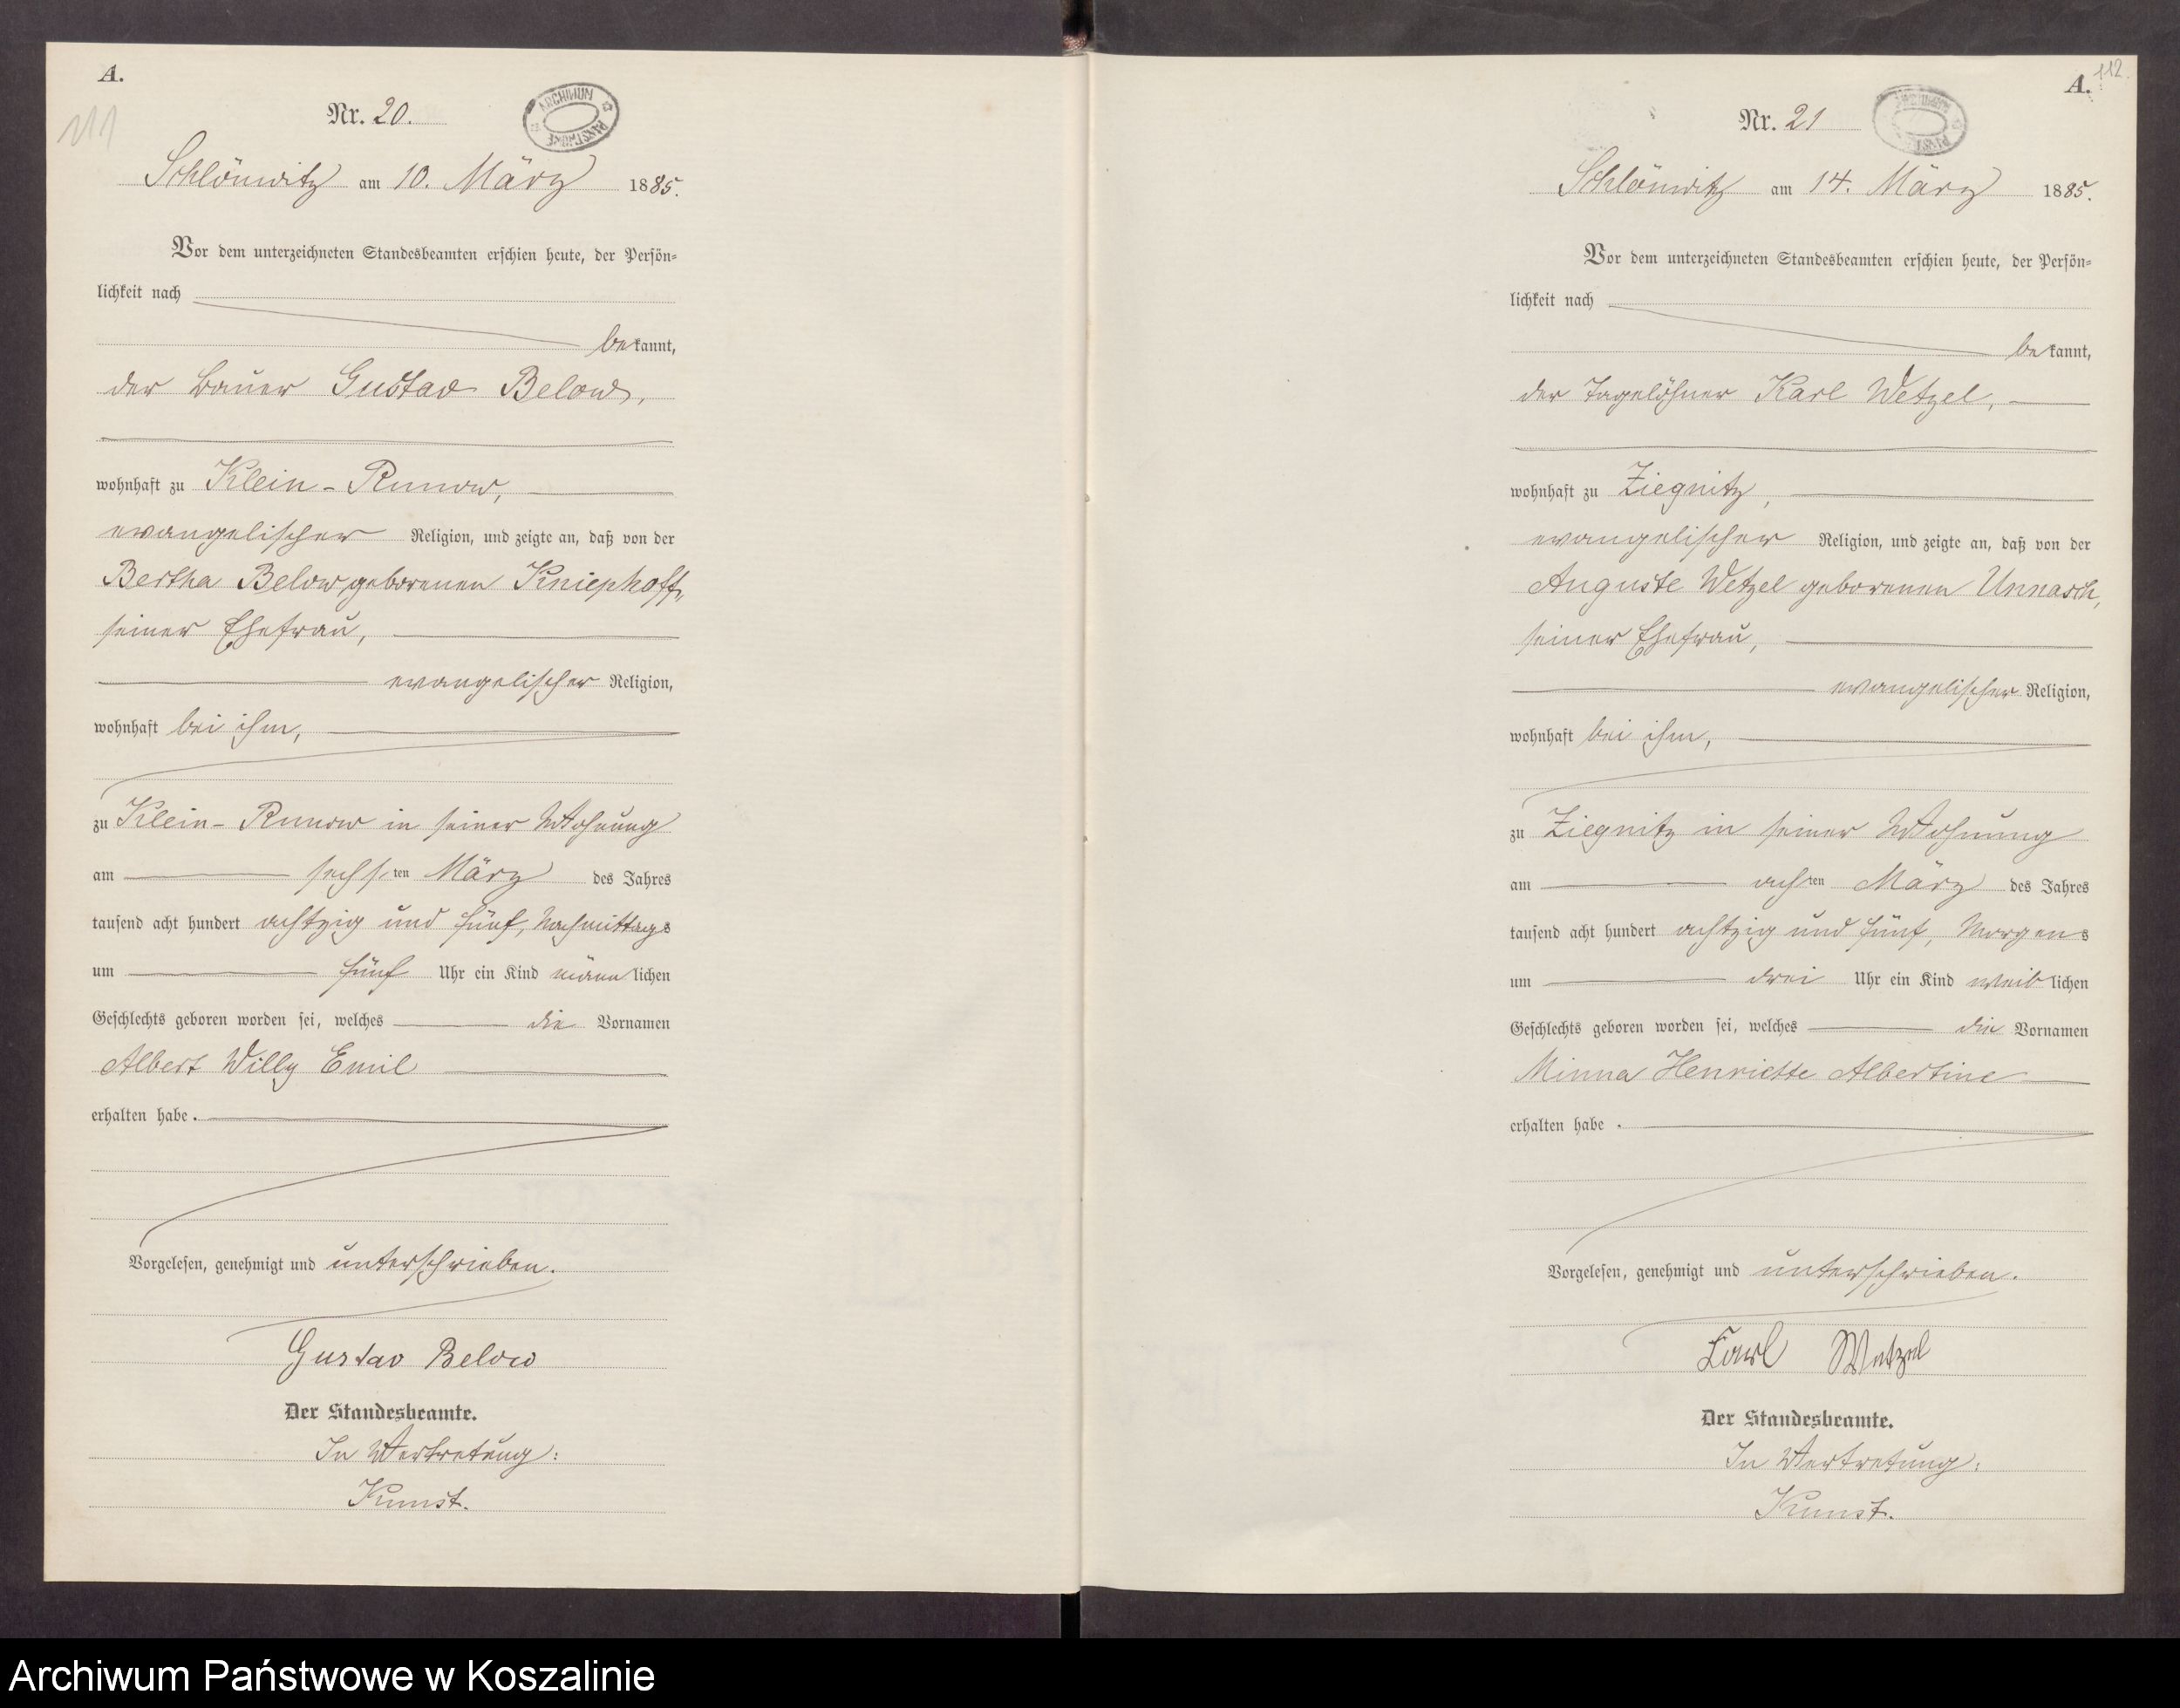 A.
111
Nr. 20.
ARCHIWUM PAŃSTWOWE
Schlönwitz am 10. März 1885.
Vor dem unterzeichneten Standesbeamten erschien heute, der Persön-
lichkeit nach
bekannt,
der Bauer Gustav Below,
wohnhaft zu Klein-Runow,
evangelischer Religion, und zeigte an, daß von der
Bertha Below geborenen Kniephoff,
seiner Ehefrau,
evangelischer Religion,
wohnhaft bei ihm,
zu Klein-Runow in seiner Wohnung
am sechsten März des Jahres
tausend acht hundert achtzig und fünf, Nachmittags
um fünf Uhr ein Kind männlichen
Geschlechts geboren worden sei, welches die Vornamen
Albert Willy Emil
erhalten habe.
Vorgelesen, genehmigt und unterschrieben.
Gustav Below
Der Standesbeamte.
In Vertretung:
Kunst.
A.
112.
Nr. 21
Schlönwitz am 14. März 1885.
Vor dem unterzeichneten Standesbeamten erschien heute, der Persön-
lichkeit nach
bekannt,
der Tagelöhner Karl Wetzel,
wohnhaft zu Ziegnitz,
evangelischer Religion, und zeigte an, daß von der
Auguste Wetzel geborenen Unnasch,
seiner Ehefrau,
evangelischer Religion,
wohnhaft bei ihm,
zu Ziegnitz in seiner Wohnung
am achten März des Jahres
tausend acht hundert achtzig und fünf, Morgens
um drei Uhr ein Kind weiblichen
Geschlechts geboren worden sei, welches die Vornamen
Minna Henriette Albertine
erhalten habe.
Vorgelesen, genehmigt und unterschrieben.
Carl Wetzel
Der Standesbeamte.
In Vertretung:
Kunst.
Archiwum Państwowe w Koszalinie